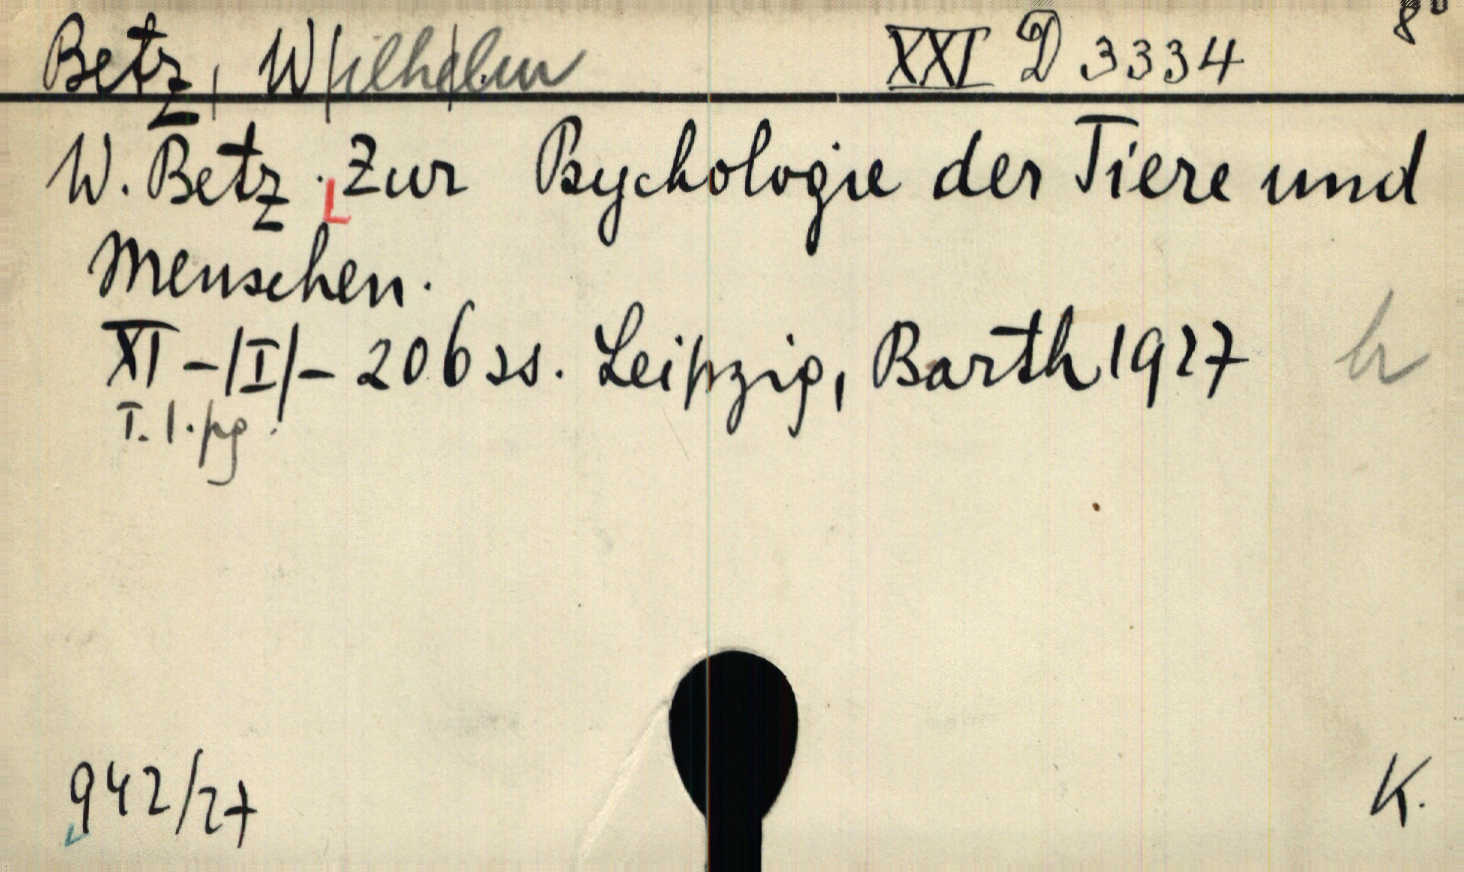 Betz, W/ilhelm/ XXI D 3334 8°
W. Betz. Zur Psychologie der Tiere und
Menschen.
XI-/I/-206 ss. Leipzig, Barth 1927
T. 1. pg.
942/27 K.